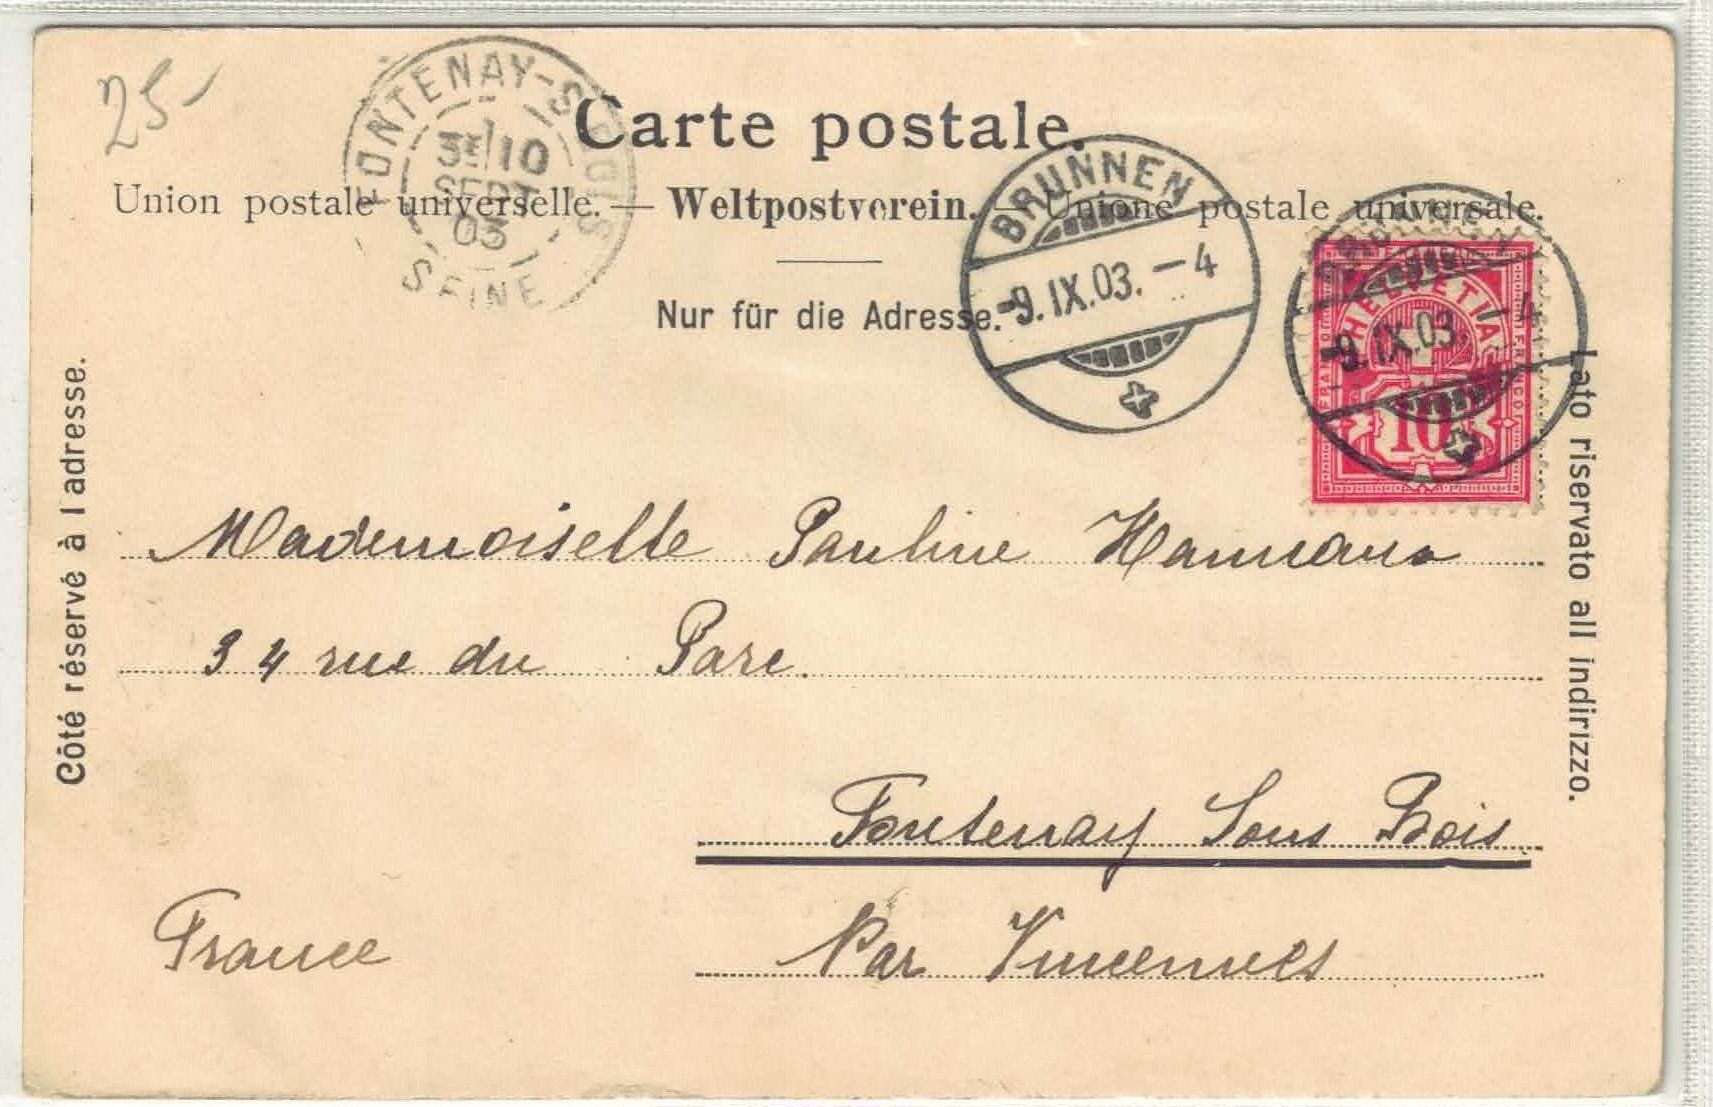 25-
FONTENAY-S-BOIS
3E/10
SEPT
03
SEINE
Carte postale.
Union postale universelle. — Weltpostverein. — Unione postale universale.
Nur für die Adresse.
BRUNNEN
-9.IX.03.-4
BRUNNEN
-9.IX.03.-4
HELVETIA
FRANCO
FRANCO
10
Côté réservé à l adresse.
Lato riservato all indirizzo.
Mademoiselle Pauline
34 rue du Parc.
Fontenay Sous Bois
France
Par Vincennes